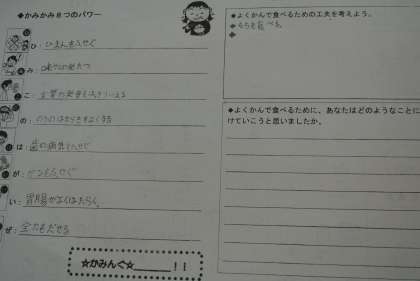 ◆かみかみ8つのパワー
ひ：ひまんをふせぐ
み：味やかが発たつ
こ：言葉の発音をはっきりいえる
の：のうのはたらきをよくする
は：歯の病気をふせぐ
が：がんをふせぐ
い：胃腸がよくはたらく
ぜ：全力をだせる
☆かみんぐ☆＿＿＿＿！！
◆よくかんで食べるための工夫を考えよう。
◆
◆
◆よくかんで食べるために、あなたはどのようなことに
けていこうと思いましたか。